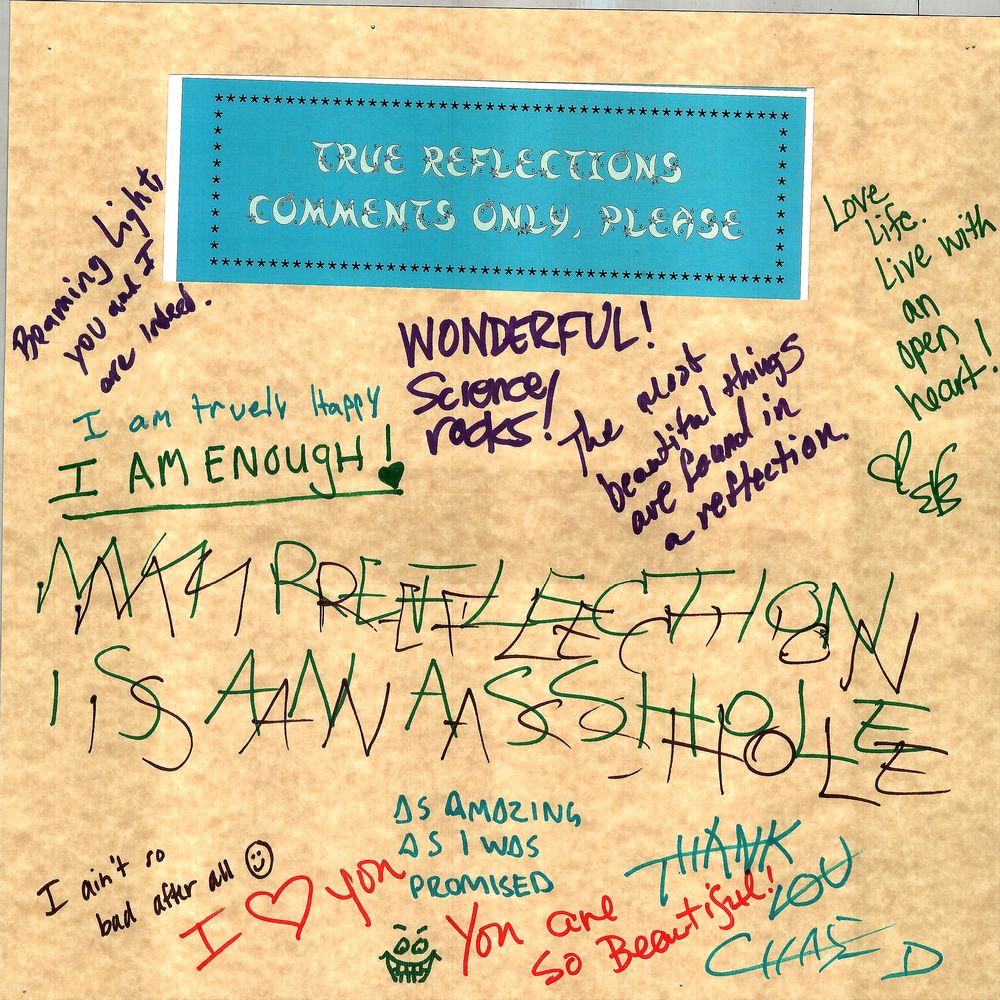 TRUE REFLECTIONS
COMMENTS ONLY, PLEASE
Beaming Light,
you and I
are indeed.
Love
life.
Live with
an
open
heart!
WONDERFUL!
Science
rocks!
The most
beautiful things
are found in
a reflection.
I am truely Happy
I AM ENOUGH!
MY REFLECTION
IS AN ASSHOLE
AS AMAZING
AS I WAS
PROMISED
THANK
YOU
CHASE D
I ain't so
bad after all
I ♡ you
You are
So Beautiful!